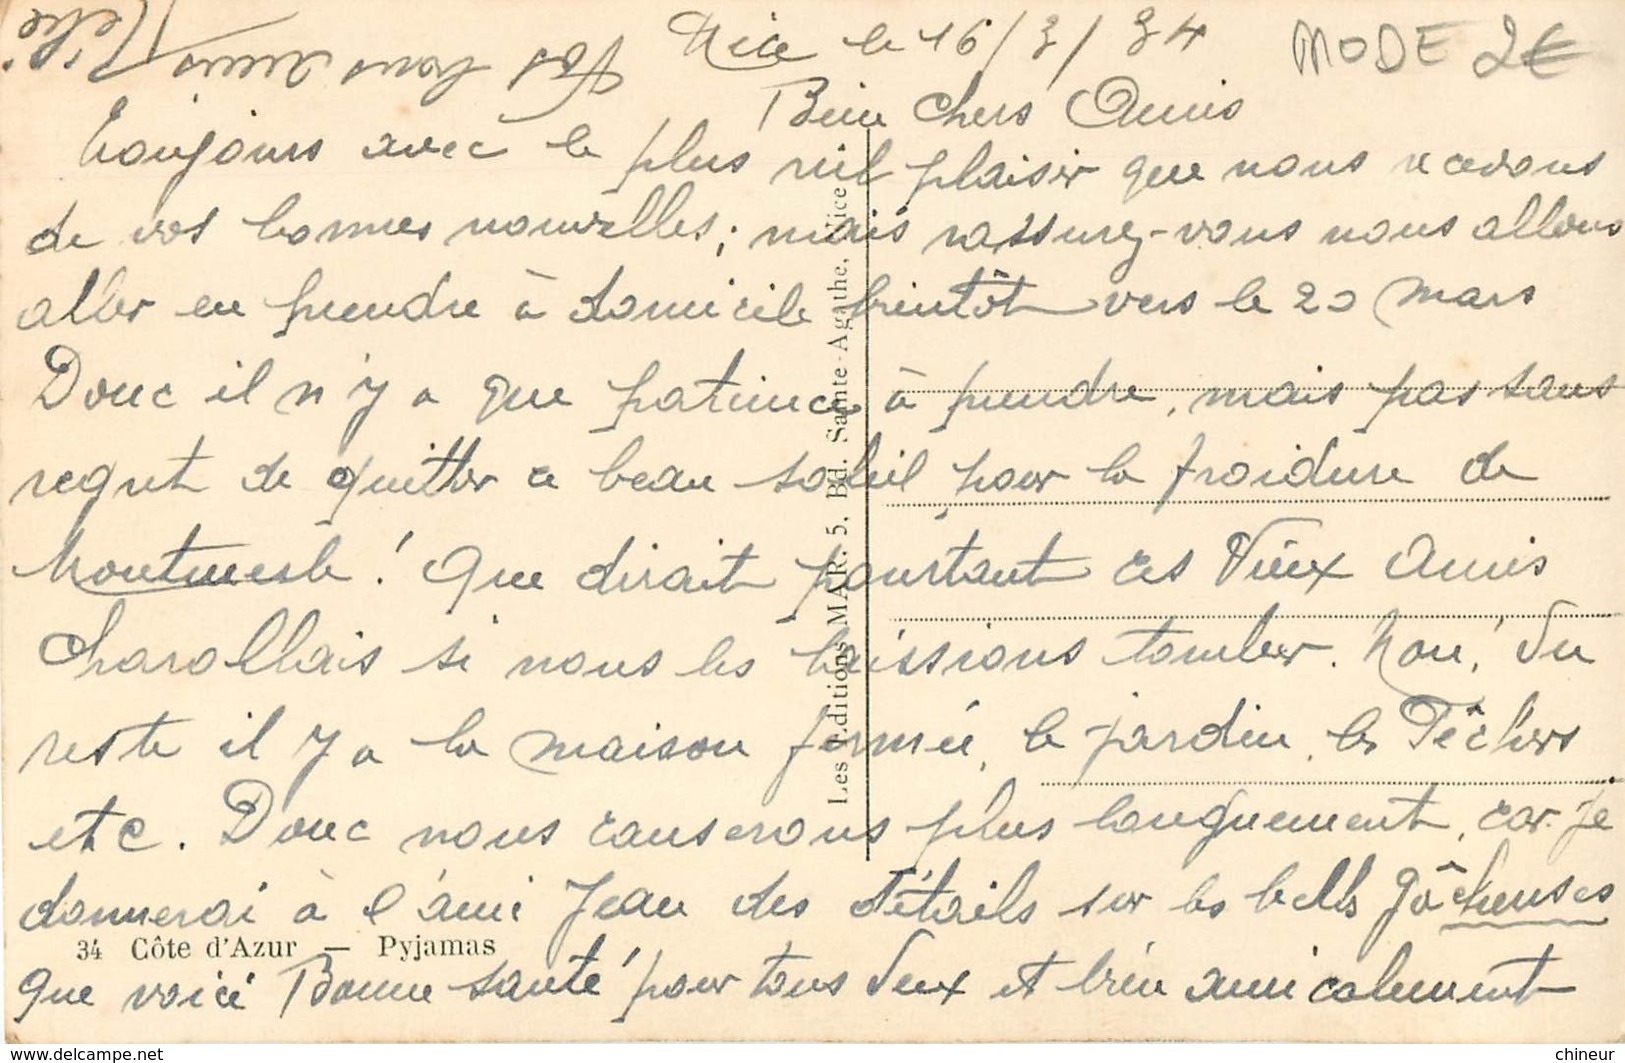 Nice le 16/3/34
MODE 2€
Bien chers Amis
Toujours avec le plus réel plaisir que nous recevons
de vos bonnes nouvelles; mais rassurez-vous nous allons
aller en prendre à domicile bientôt vers le 20 Mars
Donc il n'y a que patience à prendre, mais pas sans
regret de quitter ce beau soleil pour la froidure de
! Que dirait pourtant ces Vieux Amis
Charollais si nous les laissions tomber. Non! Du
reste il y a la maison fermée, le jardin, les Pêchers
etc. Donc nous causerons plus longuement, car je
donnerai à l'ami Jean des détails sur les belles gâcheuses
que voici Bonne santé pour tous deux et bien amicalement
Vos vieux amis
34 Côte d'Azur — Pyjamas
Les Editions MAR. 5, Bd. Sainte-Agathe, Nice
www.delcampe.net
chineur